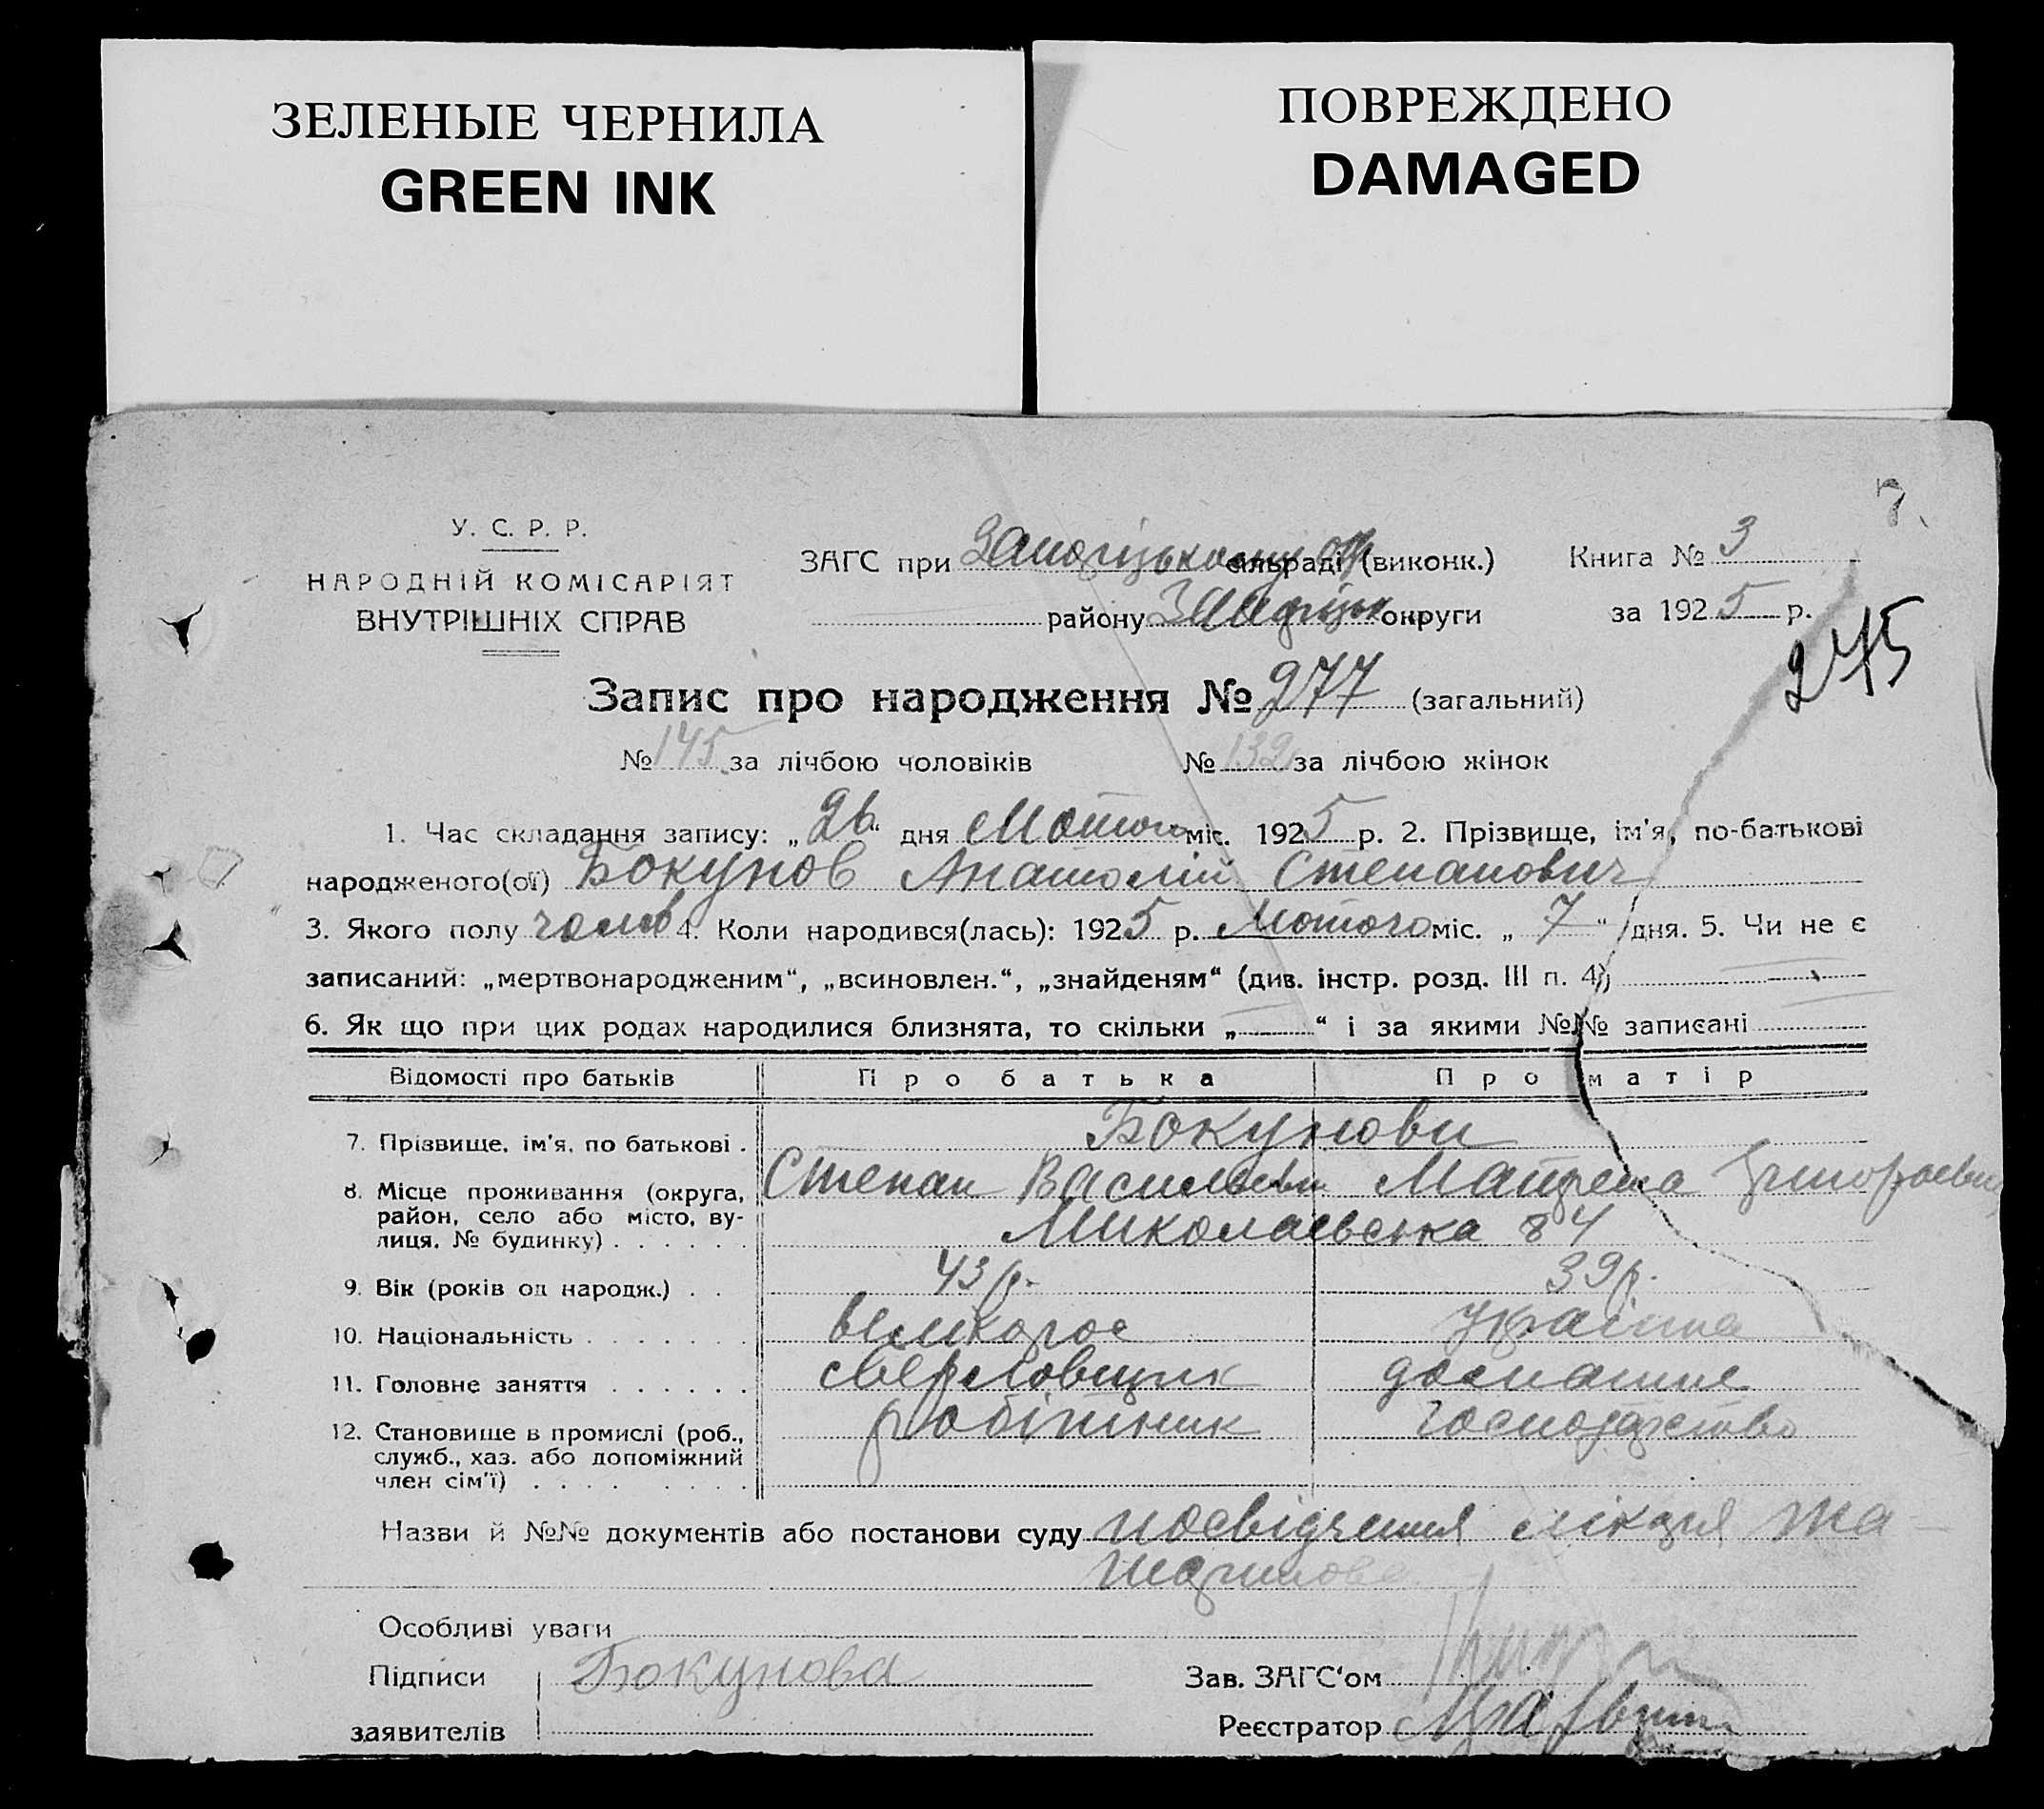 ЗЕЛЕНЫЕ ЧЕРНИЛА
GREEN INK
ПОВРЕЖДЕНО
DAMAGED
7
У. С. Р. Р.
НАРОДНІЙ КОМІСАРІЯТ
ВНУТРІШНІХ СПРАВ
ЗАГС при сільраді (виконк.)
району округи
Книга № 3
за 1925 р.
275
Запис про народження № 277 (загальний)
№ 145 за лічбою чоловіків № 132 за лічбою жінок
1. Час складання запису: „26“ дня Лютого міс. 1925 р. 2. Прізвище, ім'я, по-батькові
народженого(ої) Бокунов Анатолій Степанович
3. Якого полу чолов 4. Коли народився(лась): 1925 р. Лютого міс. „7“ дня. 5. Чи не є
записаний: „мертвонародженим“, „всиновлен.“, „знайденям“ (див. інстр. розд. III п. 4)
6. Як що при цих родах народилися близнята, то скільки „ “ і за якими №№ записані
Відомості про батьків Про батька Про матір
7. Прізвище, ім'я, по батькові . Бокунови
Степан Васильев Матрена
8. Місце проживання (округа,
район, село або місто, ву-
лиця, № будинку) . . . . . . Миколаєвська 84
9. Вік (років од народж.) . . 43 р. 39 р.
10. Національність . . . . . . . великорос українка
11. Головне заняття . . . . . . сверловщик домашнє
12. Становище в промислі (роб.,
служб., хаз. або допоміжний
член сім'ї) . . . . . . . . робітник господарство
Назви й №№ документів або постанови суду посвідчення лікаря
Особливі уваги
Підписи
заявителів
Бокунова
Зав. ЗАГС'ом
Реєстратор